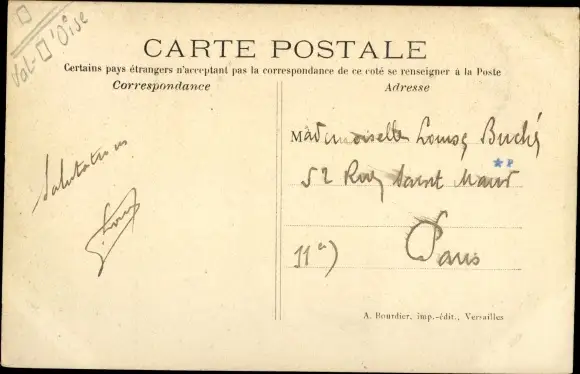 Val-d'Oise
CARTE POSTALE
Certains pays étrangers n'acceptant pas la correspondance de ce coté se renseigner à la Poste
Correspondance
Adresse
Salutations
Mademoiselle Louise Buché
52 Rue Saint Maur
11e) Paris
A. Bourdier, imp.-édit., Versailles